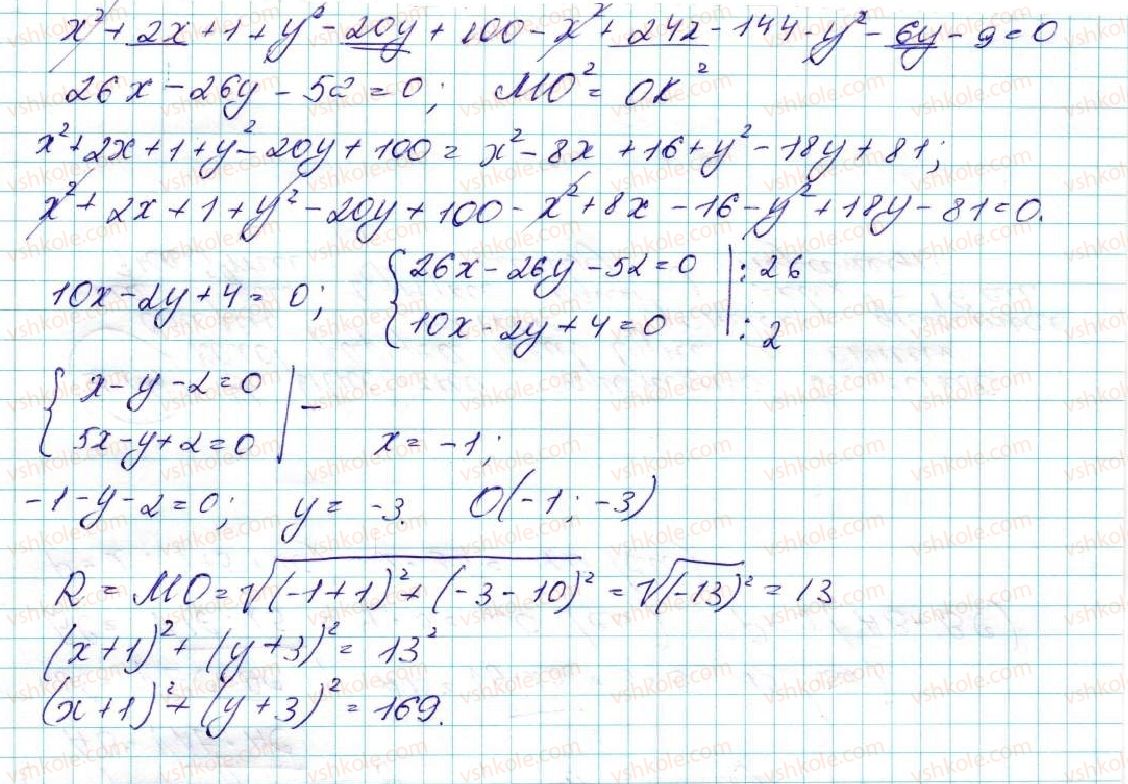 x² + 2x + 1 + y² - 20y + 100 - x² + 24x - 144 - y² - 6y - 9 = 0
26x - 26y - 52 = 0; MO² = OK²
x² + 2x + 1 + y² - 20y + 100 = x² - 8x + 16 + y² - 18y + 81;
x² + 2x + 1 + y² - 20y + 100 - x² + 8x - 16 - y² + 18y - 81 = 0.
10x - 2y + 4 = 0; { 26x - 26y - 52 = 0 | : 26
10x - 2y + 4 = 0 | : 2
{ x - y - 2 = 0 | -
5x - y + 2 = 0 | x = -1;
-1 - y - 2 = 0; y = -3. O(-1; -3)
R = MO = √((-1+1)² + (-3-10)²) = √(-13)² = 13
(x+1)² + (y+3)² = 13²
(x+1)² + (y+3)² = 169.